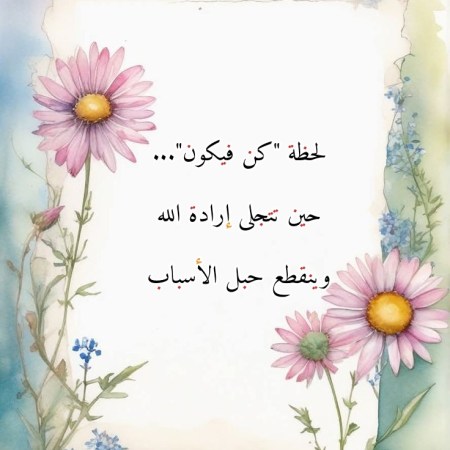 لحظة "كن فيكون"...
حين تتجلى إرادة الله
وينقطع حبل الأسباب